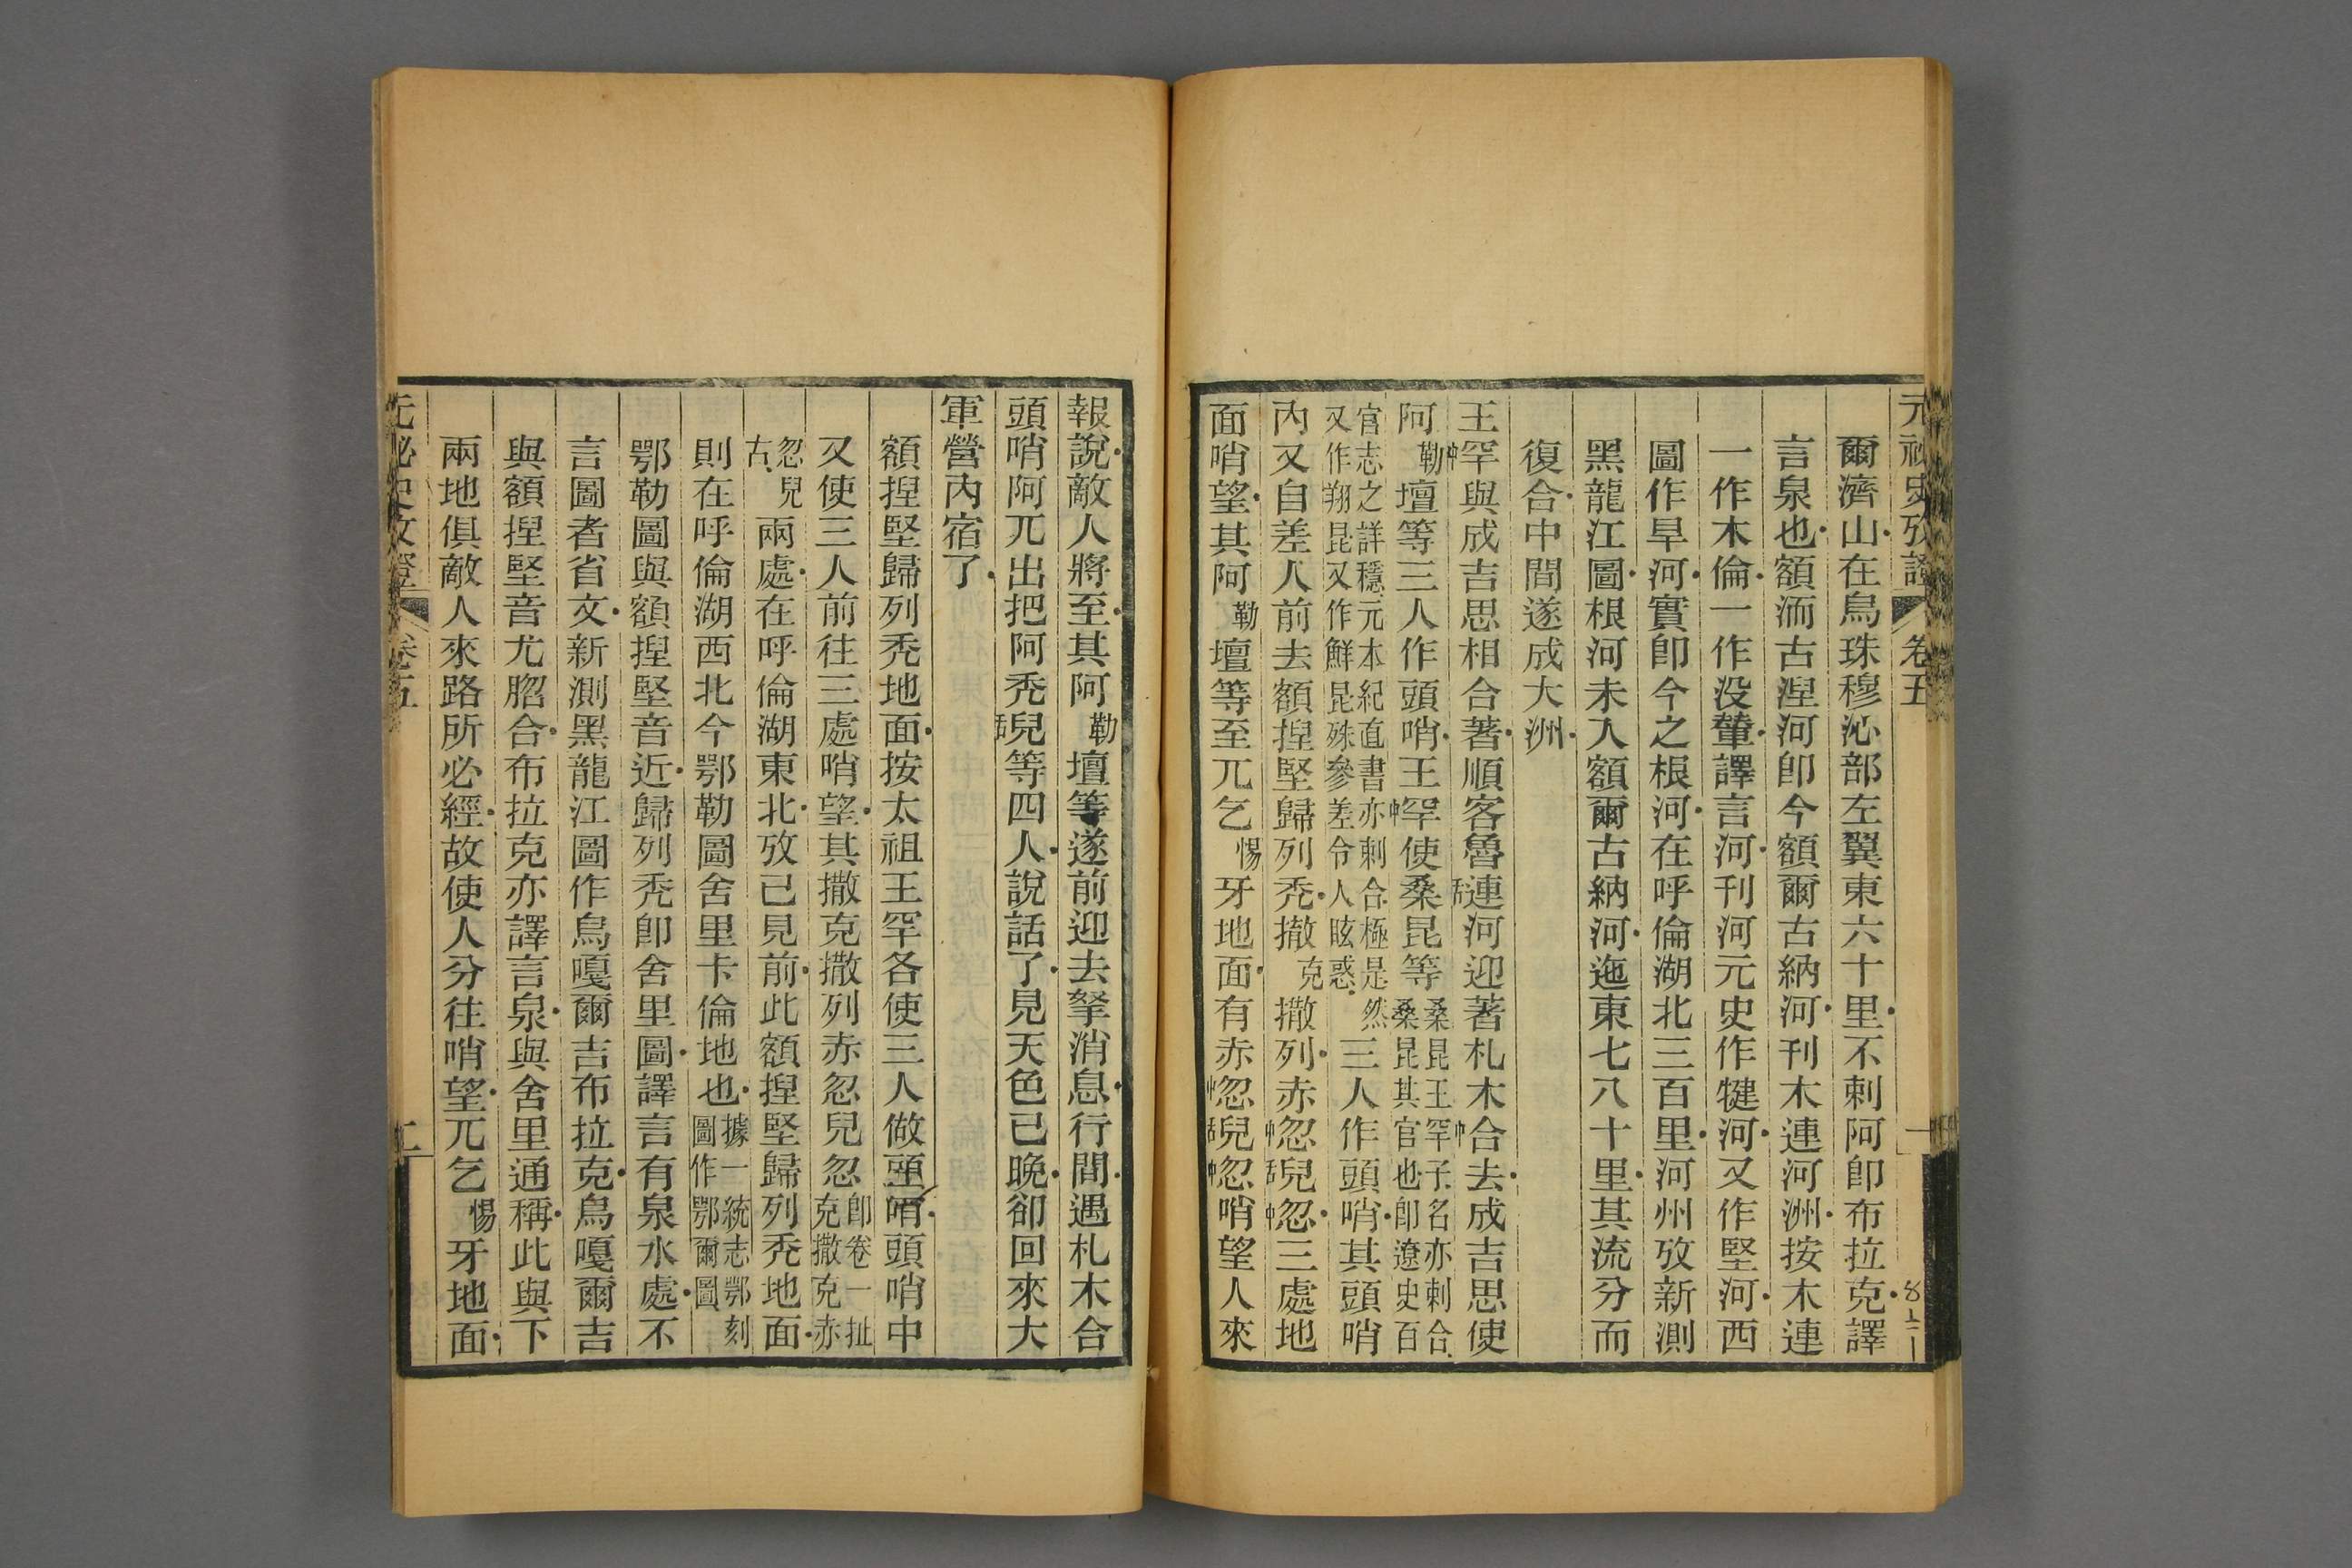 元祕史攷證 卷五 一
爾濟山在烏珠穆沁部左翼東六十里不剌阿卽布拉克譯
言泉也額洏古涅河卽今額爾古納河刊木連河洲按木連
一作木倫一作没輦譯言河刊河元史作犍河又作堅河西
圖作旱河實卽今之根河在呼倫湖北三百里河州攷新測
黑龍江圖根河未入額爾古納河迤東七八十里其流分而
復合中間遂成大洲
王中罕與成吉思相合著順客魯舌連河迎著札木中合去成吉思使
阿勒壇等三人作頭哨王中罕使桑昆等桑昆王罕子名亦剌合桑昆其官也卽遼史百
官志之詳穩元本紀直書亦剌合極是然又作翔昆又作鮮昆殊參差令人眩惑三人作頭哨其頭哨
内又自差人前去額揑堅歸列禿撤克撒列赤中忽舌兒中忽三處地
面哨望其阿勒壇等至兀乞惕牙地面有赤中忽舌兒中忽哨望人來
報說敵人將至其阿勒壇等遂前迎去拏消息行間遇札木合
頭哨阿兀出把阿禿舌兒等四人說話了見天色已晚卻回來大
軍營內宿了
額揑堅歸列禿地面按太祖王罕各使三人做頭哨頭哨中
又使三人前往三處哨望其撒克撒列赤忽兒忽卽卷一扯克撒克赤
忽兒古兩處在呼倫湖東北攷已見前此額揑堅歸列禿地面
則在呼倫湖西北今鄂勒圖舍里卡倫地也據一統志鄂刻圖作鄂爾圖
鄂勒圖與額揑堅音近歸列禿卽舍里圖譯言有泉水處不
言圖者省文新測黑龍江圖作烏嘎爾吉布拉克烏嘎爾吉
與額揑堅音尤脗合布拉克亦譯言泉與舍里通稱此與下
兩地俱敵人來路所必經故使人分往哨望兀乞惕牙地面
元祕史攷證 卷五 二